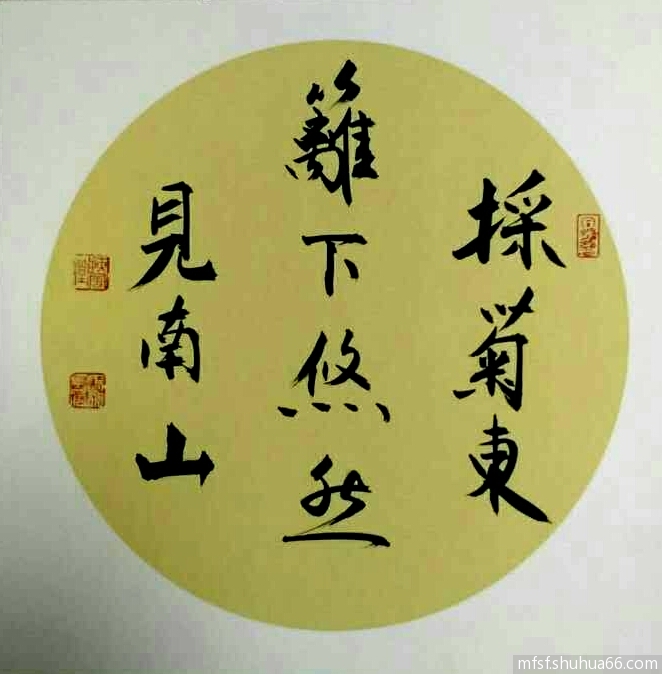 採菊東
籬下悠然
見南山
mfsfshuhua66.com